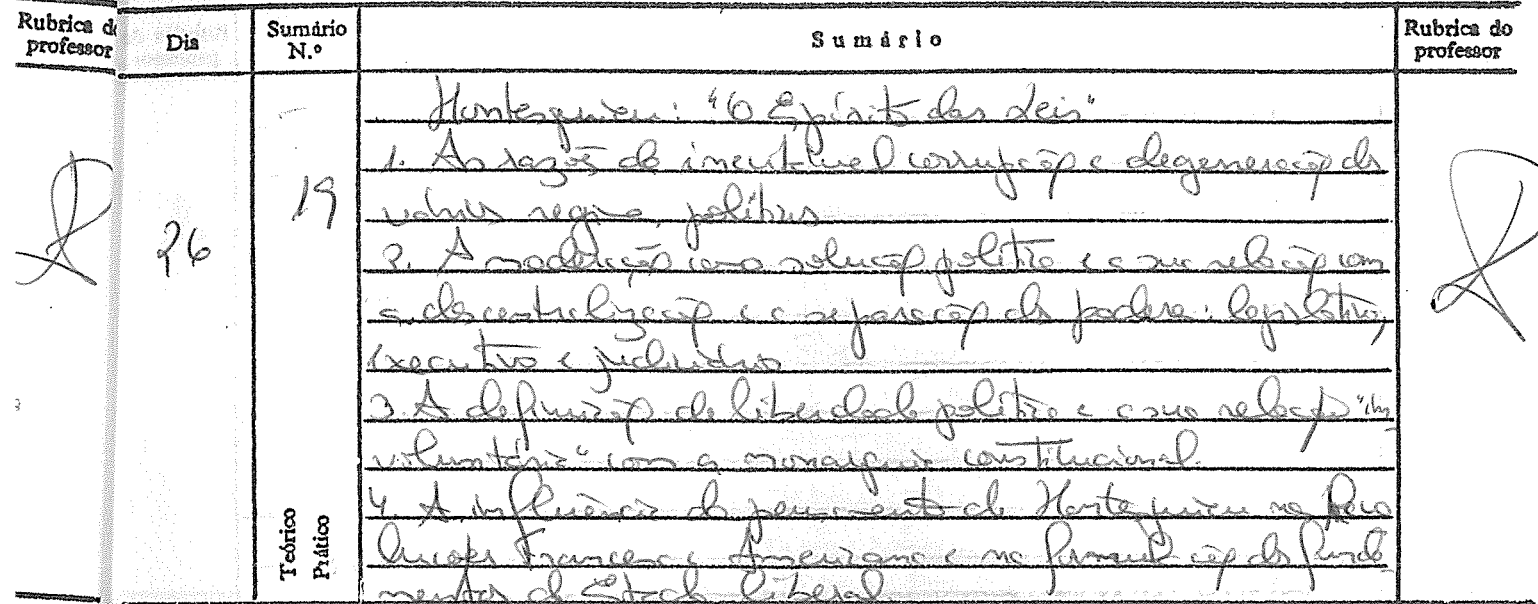 Rubrica do professor
Dia
Sumário N.º
Sumário
Rubrica do professor
26
19
Teórico
Prático
Montesquieu: "O Espírito das Leis"
1. As razões da inevitável corrupção e degeneração dos
vários regimes políticos
2. A moderação como solução política e a sua relação com
a descentralização e a separação de poderes: legislativo,
executivo e judiciário
3. A definição de liberdade política e a sua relação "in
voluntária" com a monarquia constitucional.
4. A influência do pensamento de Montesquieu nas Revo
luções Francesa e Americana e na formulação dos funda
mentos do Estado liberal.